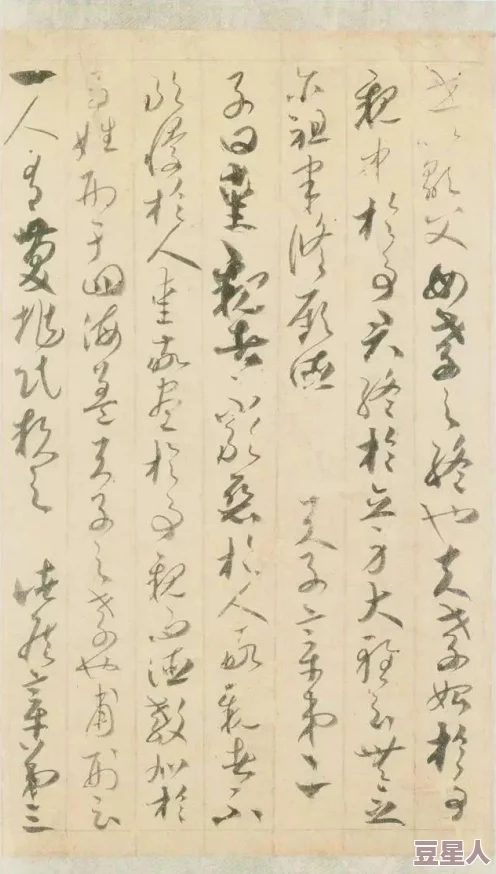 世以顯父母孝之終也夫孝始於事
親中於事君終於立身大雅云無念
尒祖聿脩厥德 天子章第二
子曰愛親者不敢惡於人敬親者不
敢慢於人愛敬盡於事親而德教加於
百姓刑于四海蓋天子之孝也甫刑云
一人有慶兆民賴之 諸侯章第三
豆星人